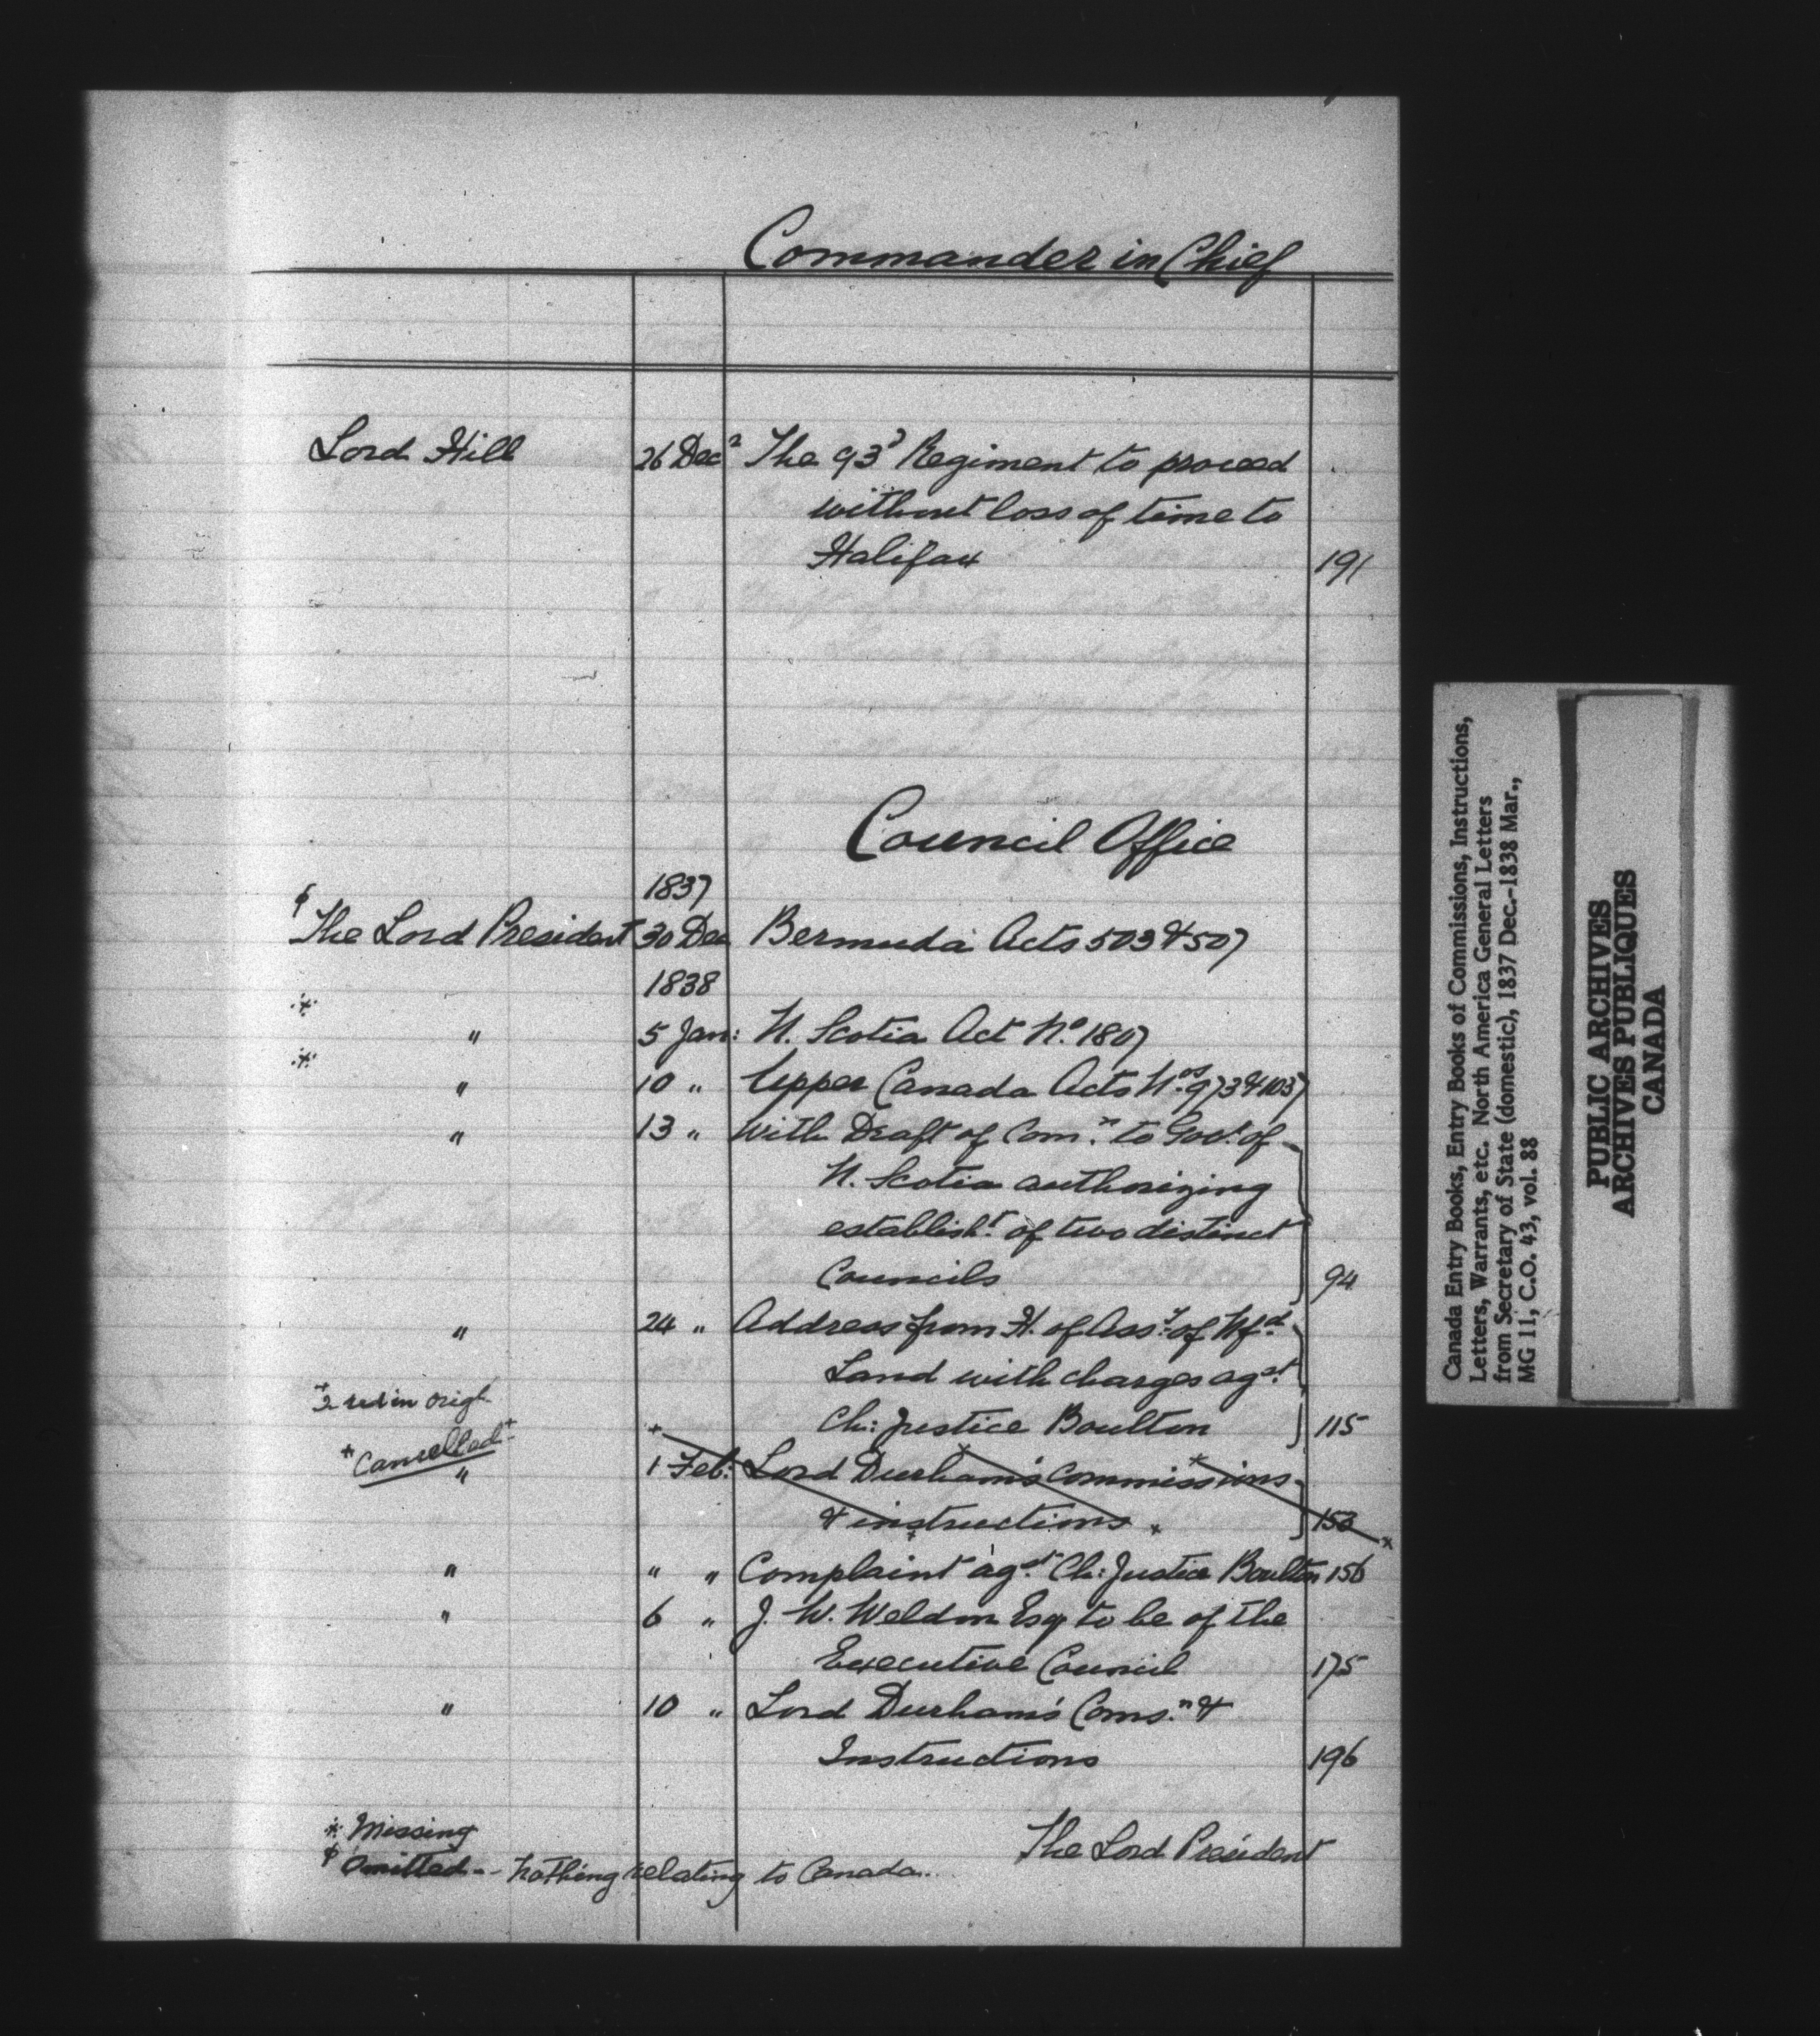 Commander in Chief
Lord Hill 26 Decr The 93d Regiment to proceed
without loss of time to
Halifax 191
Council Office
1837
φ The Lord President 30 Dec Bermuda Acts 503 & 507
1838
※ " 5 Jan: N. Scotia Act No. 1807
※ " 10 " Upper Canada Acts Nos. 973 & 1037
" 13 " With Draft of Comn. to Govr. of
N. Scotia authorizing
establisht. of two distinct
Councils 94
" 24 " Address from H. of Assy. of Nfd.
Land with charges agst.
Ch: Justice Boulton 115
+ red in origl.
* Cancelled +
" 1 Feb: Lord Durham's Commissions
& instructions 153
" " " Complaint agst. Ch: Justice Boulton 156
" 6 " J. W. Weldon Esq to be of the
Executive Council 175
" 10 " Lord Durham's Coms.n &
Instructions 196
※ Missing
φ Omitted -- nothing relating to Canada..
The Lord President
Canada Entry Books, Entry Books of Commissions, Instructions,
Letters, Warrants, etc. North America General Letters
from Secretary of State (domestic), 1837 Dec.-1838 Mar.,
MG 11, C.O. 43, vol. 88
PUBLIC ARCHIVES
ARCHIVES PUBLIQUES
CANADA